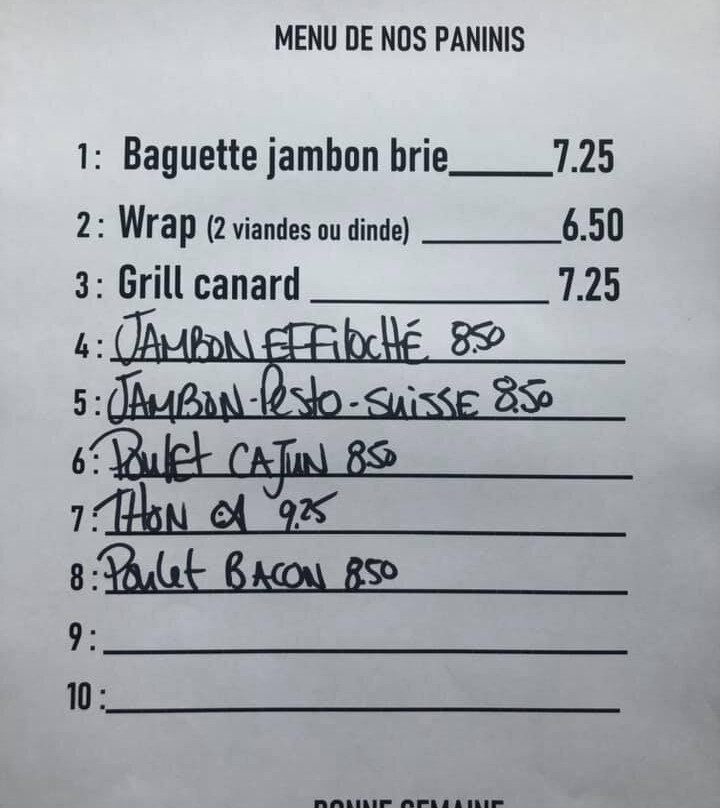 MENU DE NOS PANINIS
1: Baguette jambon brie 7.25
2: Wrap (2 viandes ou dinde) 6.50
3: Grill canard 7.25
4: JAMBON EFFilocHÉ 8.50
5: JAMBON-Pesto-SuiSSE 8.50
6: Poulet CAJUN 8.50
7: THON 9.25
8: Poulet BACON 8.50
9:
10:
BONNE SEMAINE